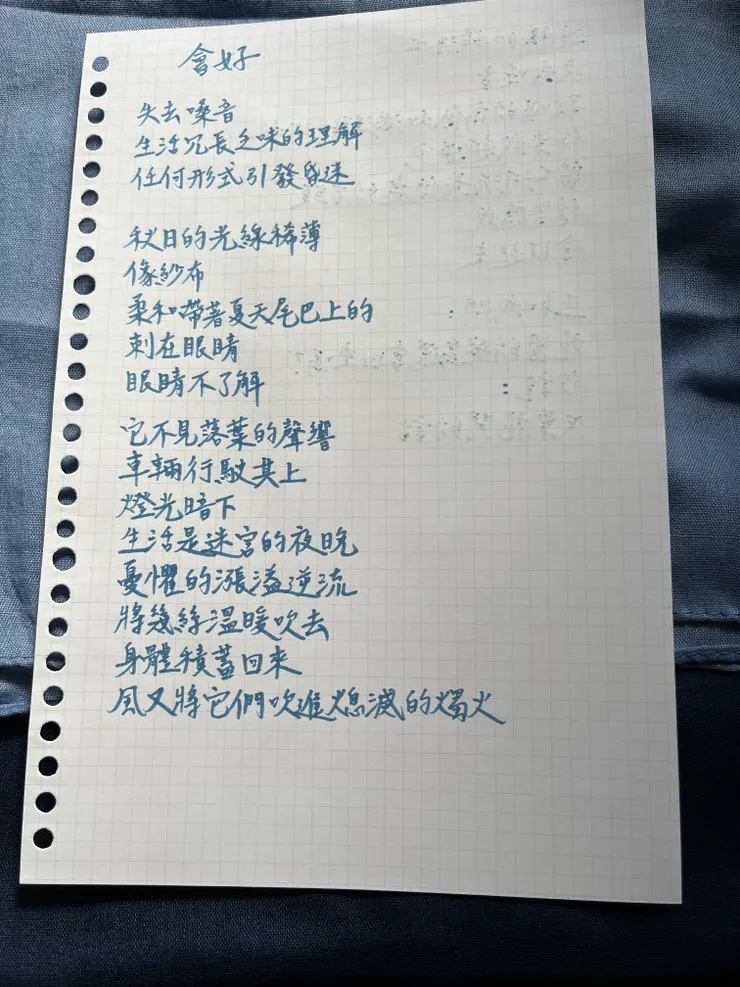 會好
失去嗓音
生活冗長乏味的理解
任何形式引發昏迷
秋日的光線稀薄
像紗布
柔和帶著夏天尾巴上的
刺在眼睛
眼睛不了解
它不見落葉的聲響
車輛行駛其上
燈光暗下
生活是迷宮的夜晚
憂懼的漲溢逆流
將幾絲溫暖吹去
身體積蓄回來
風又將它們吹進熄滅的燭火